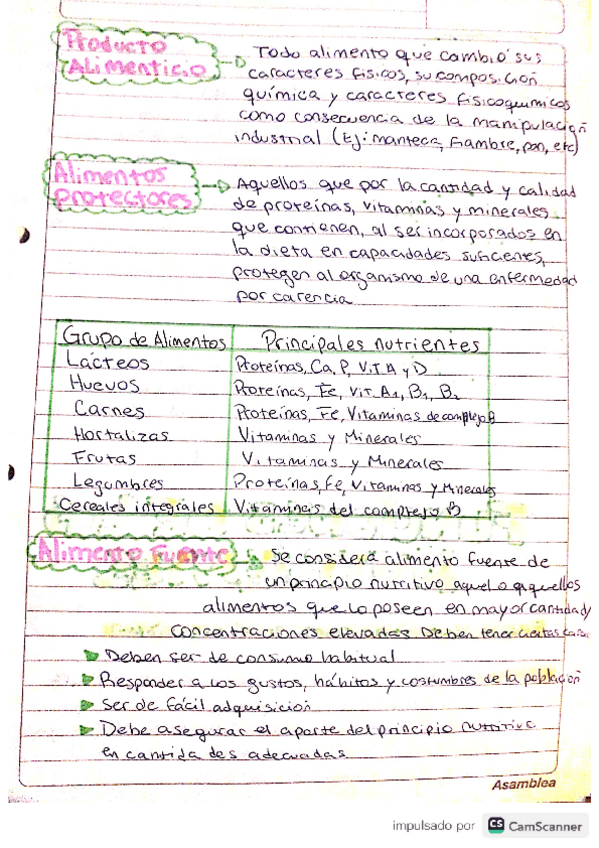 Producto
Alimenticio
Todo alimento que cambió sus
caracteres físicos, su composición
química y caracteres fisicoquimicos
como consecuencia de la manipulación
industrial (Ej: manteca, fiambre, pan, etc)
Alimentos
protectores
Aquellos que por la cantidad y calidad
de proteínas, vitaminas y minerales
que contienen, al ser incorporados en
la dieta en capacidades suficientes,
protegen al organismo de una enfermedad
por carencia
Grupo de Alimentos Principales nutrientes
Lácteos Proteínas, Ca, P, Vit A y D
Huevos Proteínas, Fe, Vit A1, B1, B2
Carnes Proteínas, Fe, Vitaminas de complejo B
Hortalizas Vitaminas y Minerales
Frutas Vitaminas y Minerales
Legumbres Proteínas, Fe, Vitaminas y Minerales
Cereales integrales Vitaminas del complejo B
Alimento Fuente
Se considera alimento fuente de
un principio nutritivo aquel o aquellos
alimentos que lo poseen en mayor cantidad y
concentraciones elevadas Deben tener ciertas
Deben ser de consumo habitual
Responder a los gustos, hábitos y costumbres de la población
Ser de fácil adquisición
Debe asegurar el aporte del principio nutritivo
en cantidades adecuadas
Asamblea
impulsado por CS CamScanner